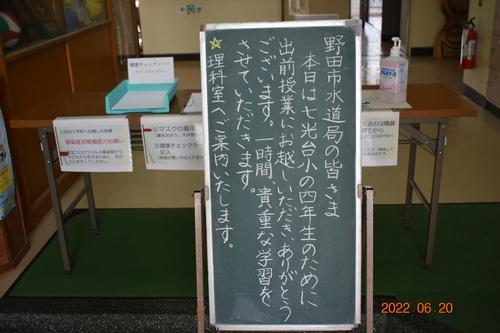 野田市水道局の皆さま
本日は七光台小の四年生のために
出前授業にお越しいただき、ありがとう
ございます。一時間、貴重な学習を
させていただきます。
☆理科室へご案内いたします。
健康チェックシート
感染症対策徹底のお願い
1)マスクの着用
2)健康チェックカード
記入
2022.06.20